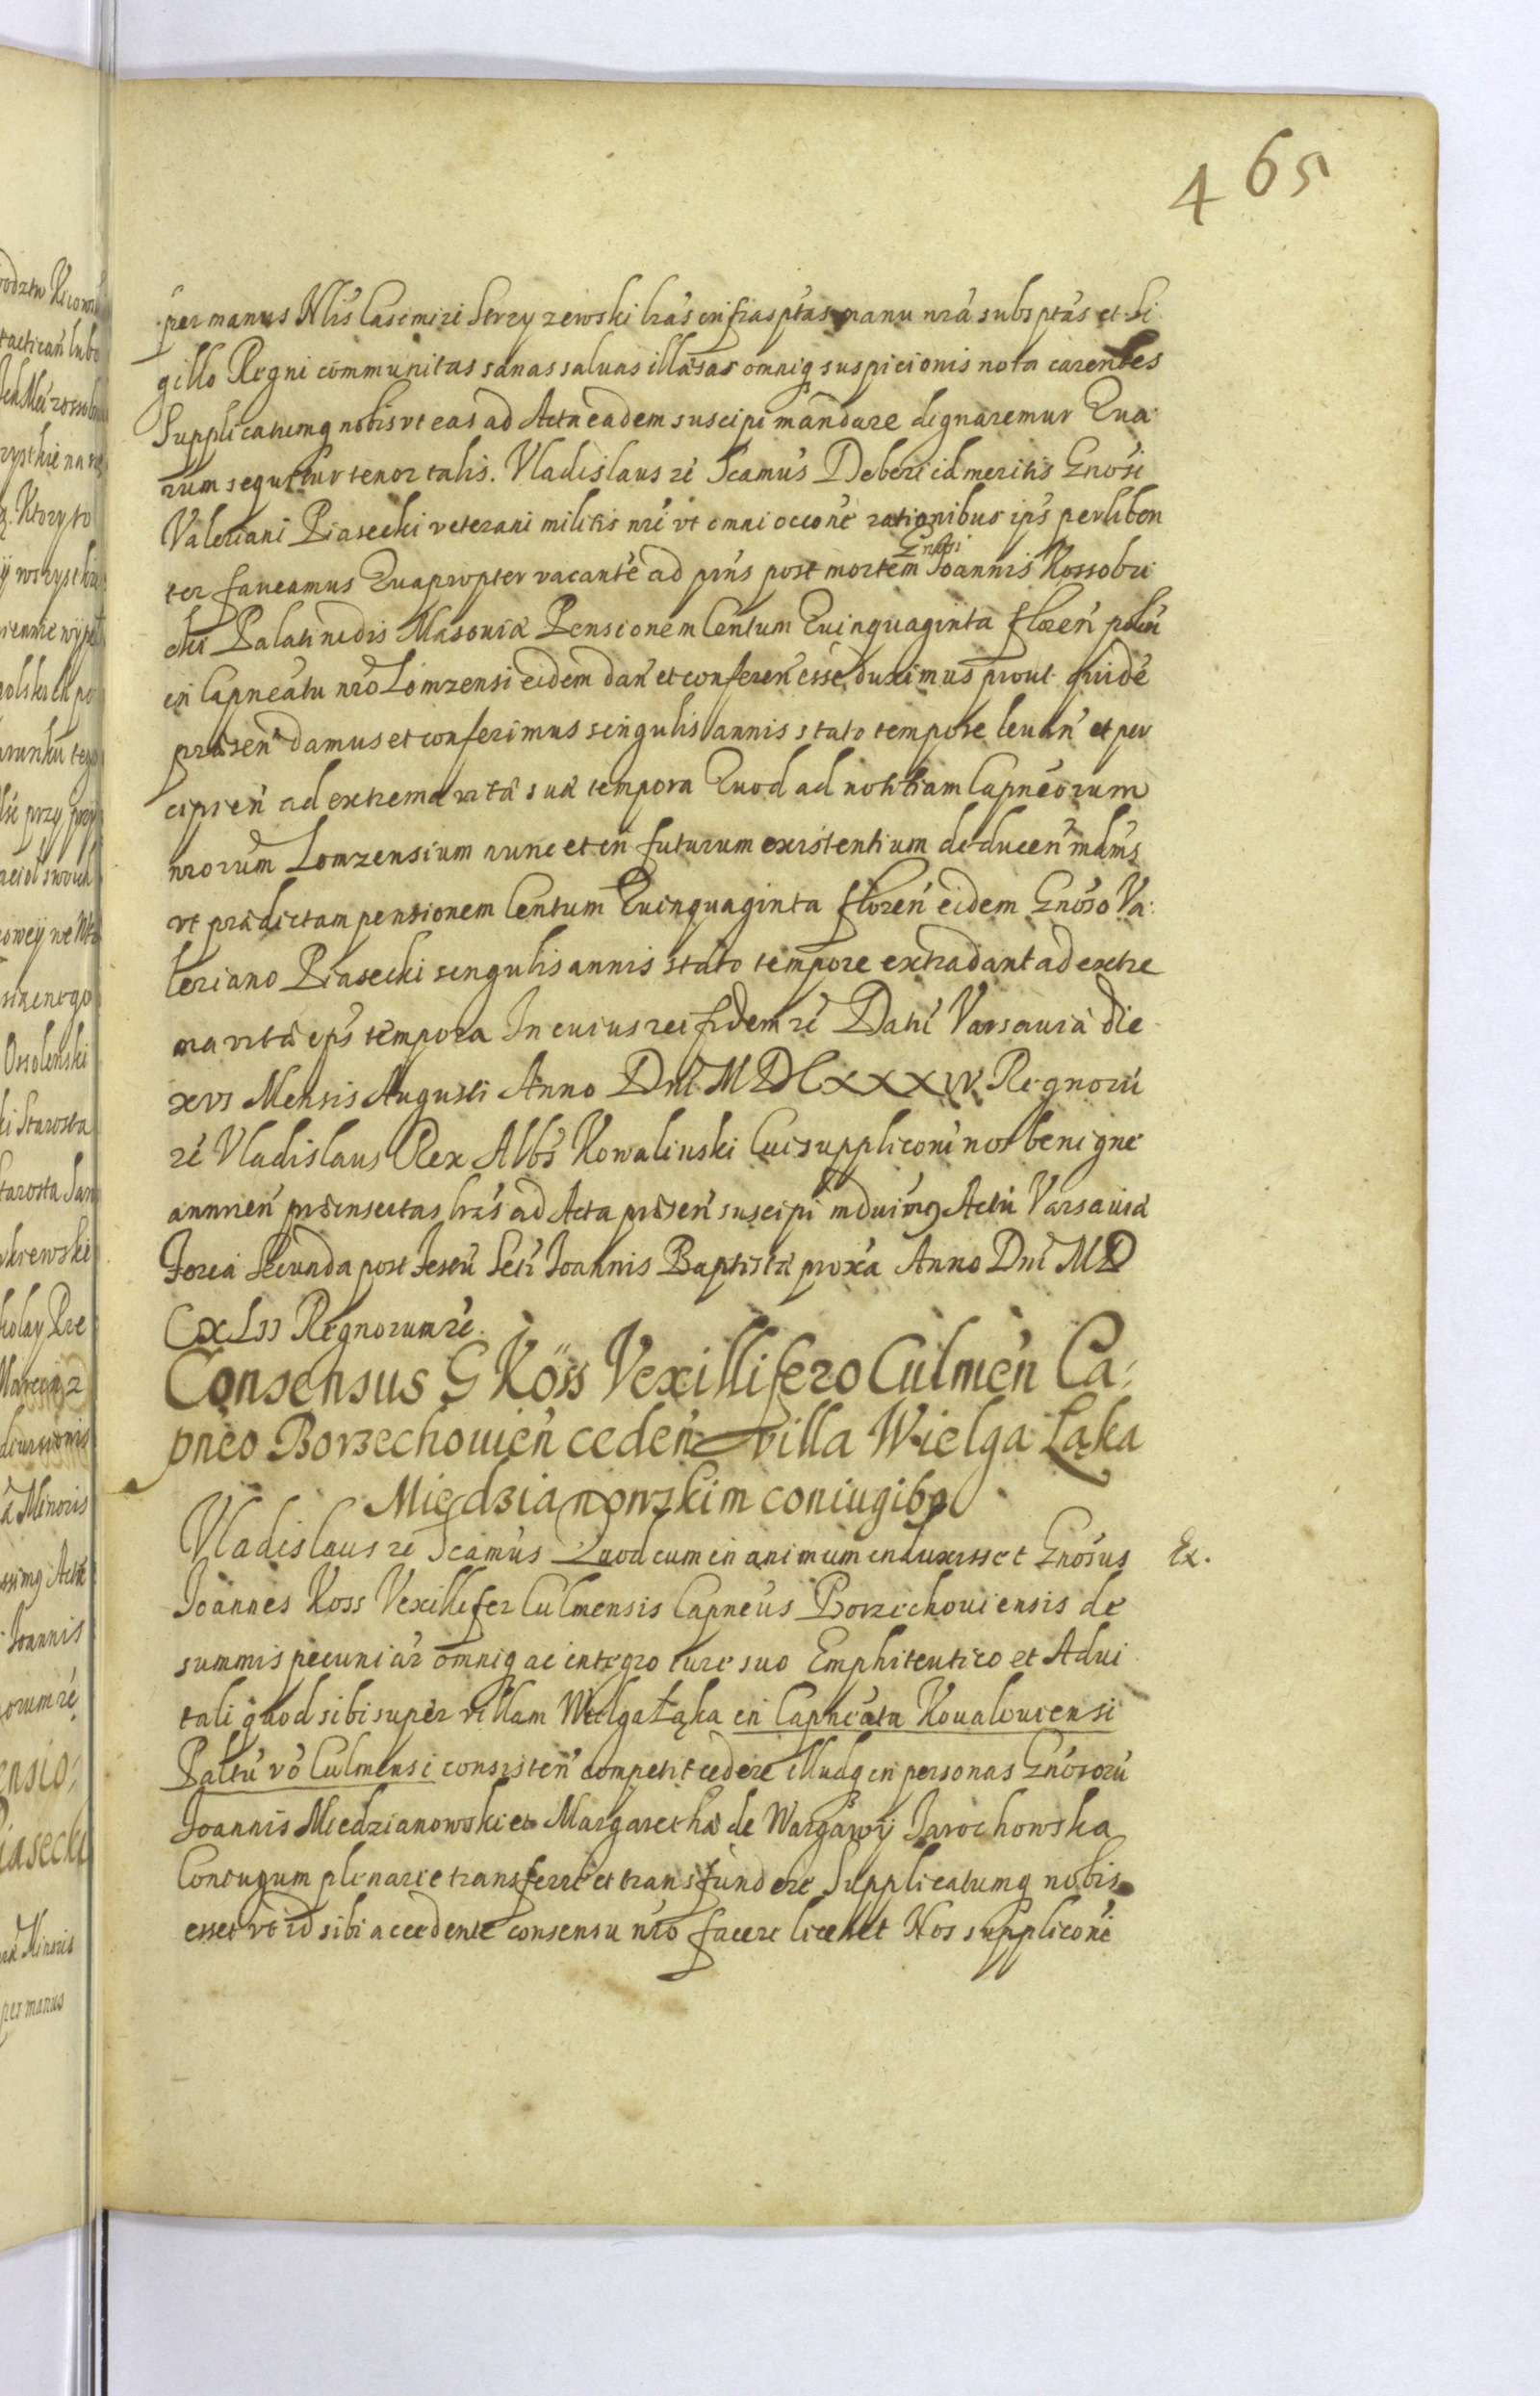 465
per manus Nlis Casimiri Strzyzewski lras infrasptas manu nra subsptas et Si
gillo Regni communitas sanas saluas illæsas omniq suspicionis nota carentes
Supplicatumq nobis vt eas ad Acta eadem suscipi mandare dignaremur Qua
rum sequitur tenor talis. Vladislaus rê Scamus Deberi id meritis Gnosi
Valeriani Piasecki veterani militis nri vt omni occone rationibus ips perliben
ter faueamus Quapropter vacante ad prns post mortem Gnosi Joannis Kossobu
cki Palatinidis Masouiæ Pensionem Centum Quinquaginta floren polon
in Capneatu nro Lomzensi eidem dan et conferen esse duximus prout quide
præsen damus et conferimus singulis annis stato tempore leuan et per
cipien ad extrema vitæ suæ tempora Quod ad notitiam Capneorum
nrorum Lomzensium nunc et in futurum existentium deducen mdms
vt prædictam pensionem Centum Quinquaginta floren eidem Gnoso Va
leriano Piasecki singulis annis stato tempore extradant ad extre
ma vitæ eps tempora In cuius rei fidem rê Dat Varsauiæ die
xvi Mensis Augusti Anno Dni MDCxxxiv. Regnoru
rê Vladislaus Rex Albs Kowaliuski Cui suppliconi nos benigne
annuen præinsertas lras ad Acta præsen suscipi mduimg Actu Varsauiæ
Feria Secunda post Festu Scti Joannis Baptistæ proxa Anno Dni MD
CxLii Regnorum rê.
Consensus G Köss Vexillifero Culmen Ca
pneo Borzechouien ceden villa Wielga Ląka
Miedzianowzkim coniugibq
Vladislaus rê Scamus Quod cum in animum induxisset Gnosus
Ex.
Joannes Koss Vexillifer Culmensis Capneus Borzechouiensis de
summis pecuniar omniq ac integro iure suo Emphiteutico et Adui
tali quod sibi super villam Wielga Łąka in Capneatu Koualouiensi
Paltu vo Culmensi consisten competit cedere illudq in personas Gnosoru
Joannis Miedzianowski et Margarethæ de Wargawy Jarochowska
Coniugum plenarie transferre et transfundere Supplicatumq nobis
esset vt id sibi accedente consensu nro facere liceret Nos suppliconi